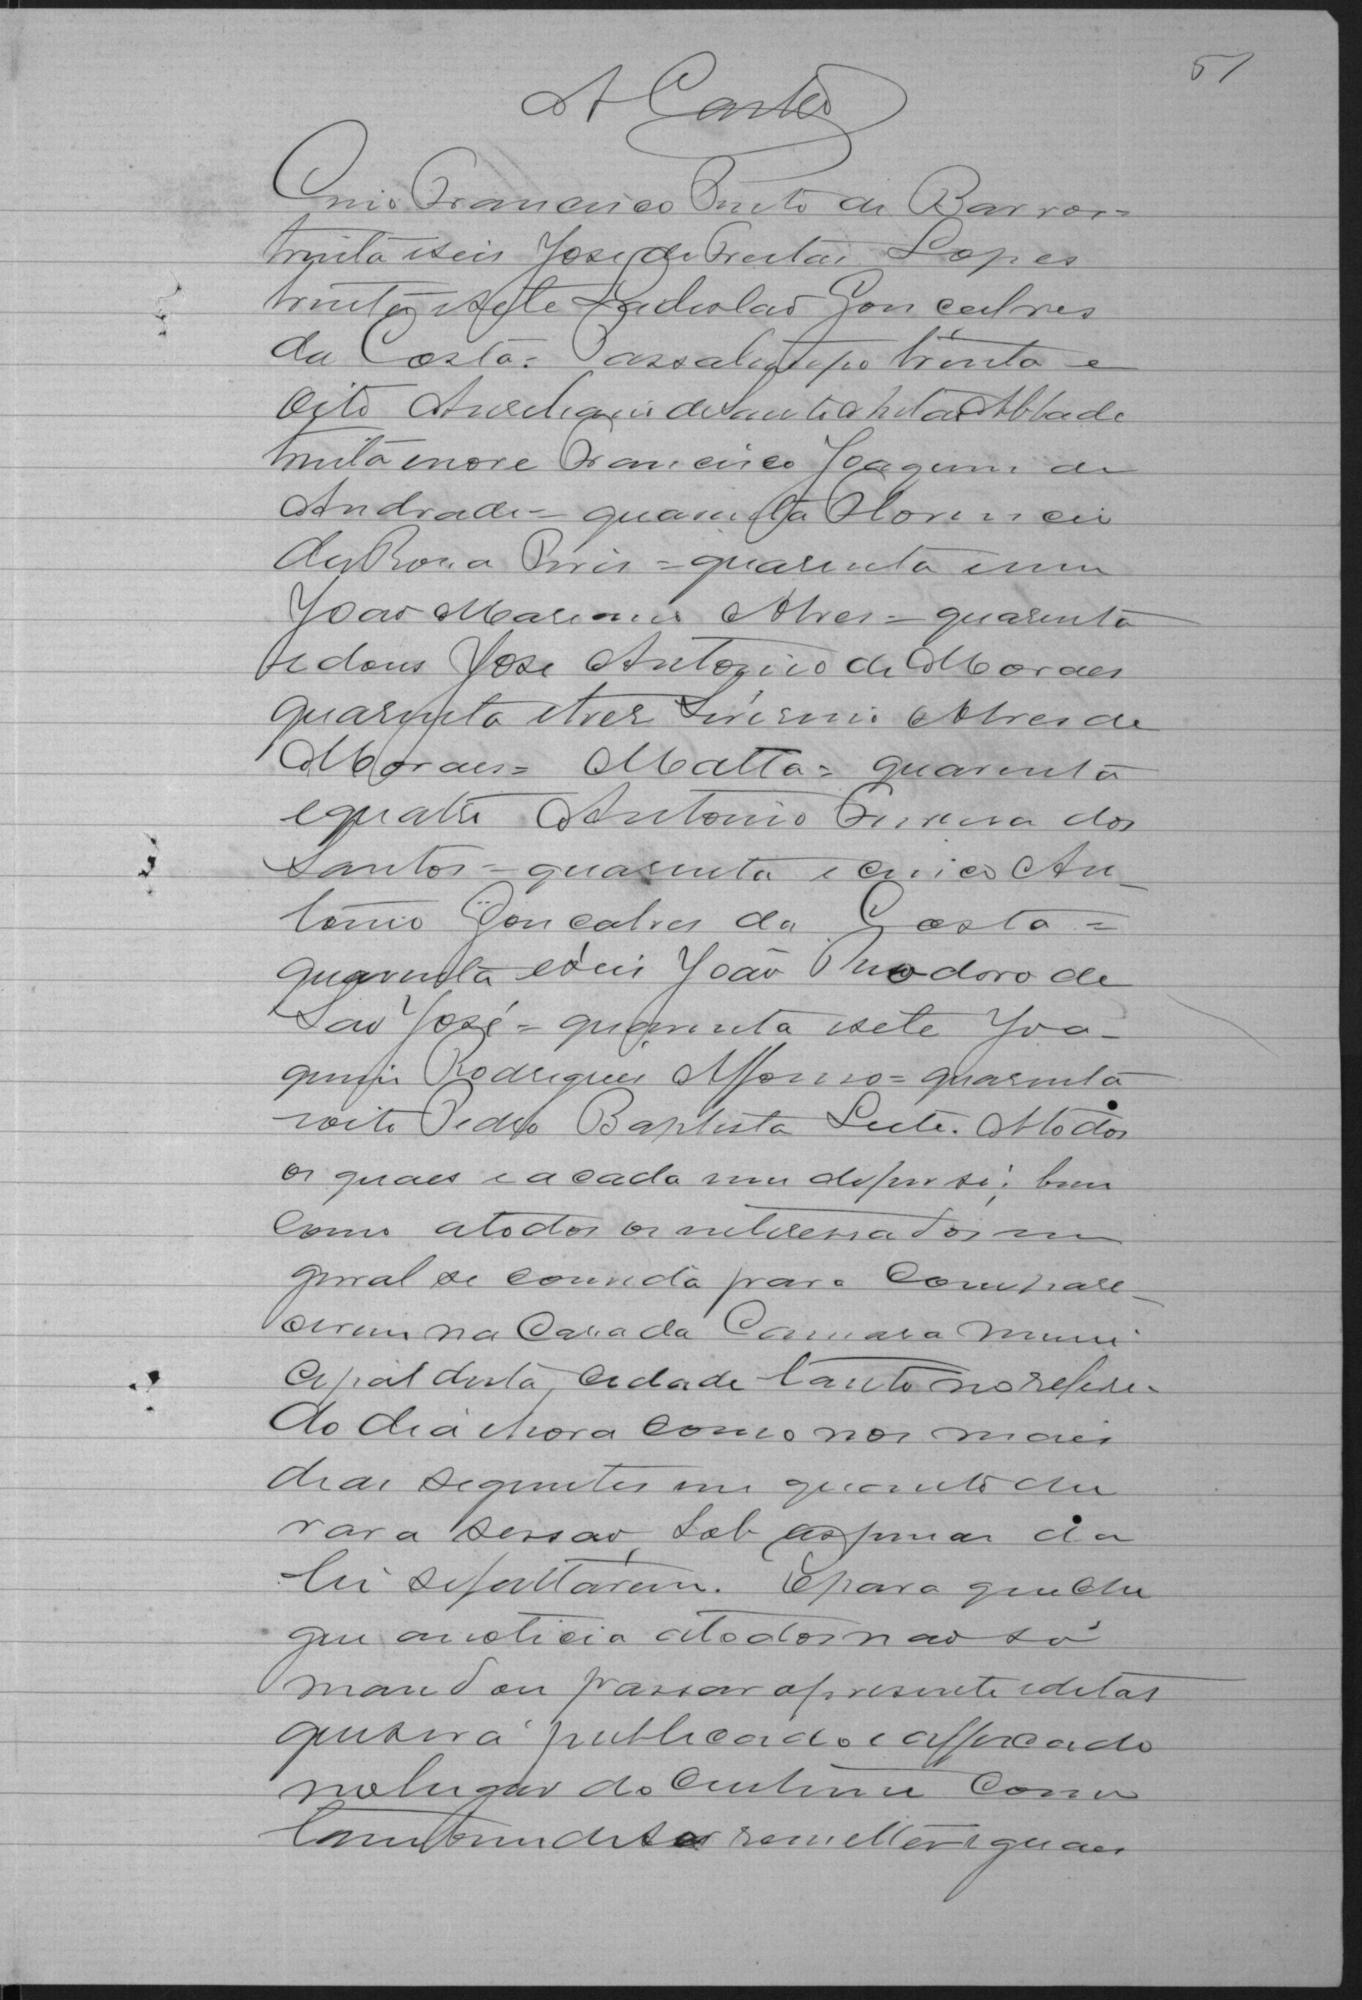 51
A Castro
Cinco Francisco Pinto de Barros=
trinta eseis José de Freitas Lopes
trinta esete Ladislao Goncalves
da Costa= Passa tempo trinta e
oito Aureliano de Abbade
trinta enove Francisco Joaquim de
Andrade= quarenta Florencio
da Rosa Pires= quarenta eum
João Marianno Alves= quarenta
edous José Antonio de Moraes
quarenta etres Silverio Alves de
Moraes= Matta= quarenta
equatro Antonio Ferreira dos
Santos= quarenta e cinco An-
tonio Goncalves da Costa=
quarenta eseis João Theodoro de
São José= quarenta esete Joa-
quim Rodrigues Affonso= quarenta
eoito Pedro Baptista Leite. Atodos
os quaes e acada um deper si, bem
como atodos os interessados em
geral se convida para compare-
cerem na Casa da Camara Muni
cipal desta cidade tanto no referi-
do dia ehora como nos mais
dias seguintes em quanto du
rar a sessão, sob as penas da
lei sefaltarem. E para que che
gue anoticia atodos não só
mandou passar apresente edital
que será publicado e affixado
nolugar do custume como
tambem remetter eguaes